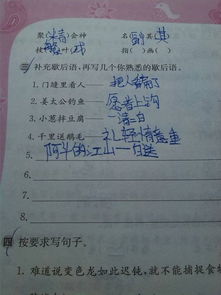 聚(精)会神 名(副)其( )
按( )叶(戏) 指( )画( )
三 补充歇后语,再写几个你熟悉的歇后语。
1. 门缝里看人——把人看扁了
2. 姜太公钓鱼——愿者上钩
3. 小葱拌豆腐——一清白
4. 千里送鹅毛——礼轻情意重
5. 阿斗的江山——白送
四 按要求写句子。
1. 难道说变色龙如此迟钝,就不能捕捉食